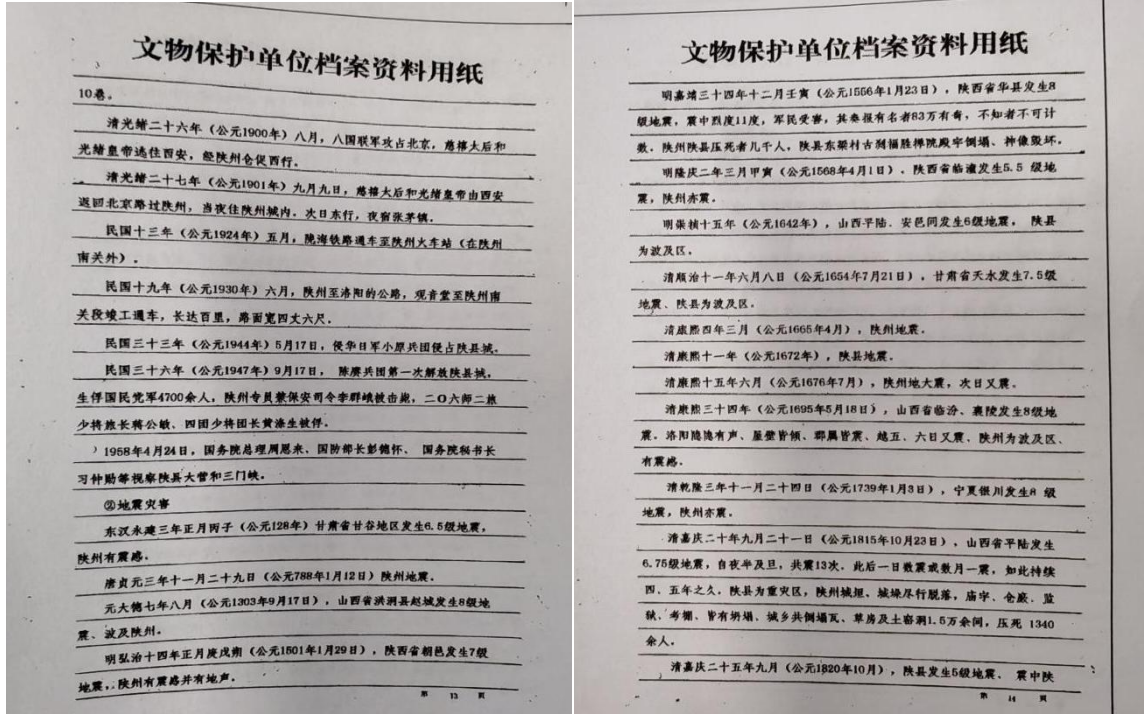 文物保护单位档案资料用纸
10卷。
清光绪二十六年（公元1900年）八月，八国联军攻占北京，慈禧太后和
光绪皇帝逃往西安，经陕州仓促西行。
清光绪二十七年（公元1901年）九月九日，慈禧太后和光绪皇帝由西安
返回北京路过陕州，当夜住陕州城内。次日东行，夜宿张茅镇。
民国十三年（公元1924年）五月，陇海铁路通车至陕州火车站（在陕州
南关外）。
民国十九年（公元1930年）六月，陕州至洛阳的公路，观音堂至陕州南
关段竣工通车，长达百里，路面宽四丈六尺。
民国三十三年（公元1944年）5月17日，侵华日军小原兵团侵占陕县城。
民国三十六年（公元1947年）9月17日， 陈赓兵团第一次解放陕县城，
生俘国民党军4700余人，陕州专员兼保安司令李群峨被击毙，二〇六师二旅
少将旅长蒋公敏、四团少将团长黄涤生被俘。
1958年4月24日，国务院总理周恩来、国防部长彭德怀、 国务院秘书长
习仲勋等视察陕县大营和三门峡。
②地震灾害
东汉永建三年正月丙子（公元128年）甘肃省甘谷地区发生6.5级地震，
陕州有震感。
唐贞元三年十一月二十九日（公元788年1月12日）陕州地震。
元大德七年八月（公元1303年9月17日），山西省洪洞县赵城发生8级地
震、波及陕州。
明弘治十四年正月庚戌朔（公元1501年1月29日），陕西省朝邑发生7级
地震，陕州有震感并有地声。
第 13 页
文物保护单位档案资料用纸
明嘉靖三十四年十二月壬寅（公元1556年1月23日），陕西省华县发生8
级地震，震中烈度11度，军民受害，其奏报有名者83万有奇，不知者不可计
数。陕州陕县压死者几千人，陕县东梁村古刹福胜禅院殿宇倒塌、神像毁坏。
明隆庆二年三月甲寅（公元1568年4月1日）。陕西省临潼发生5.5 级地
震，陕州亦震。
明崇祯十五年（公元1642年），山西平陆、安邑间发生6级地震， 陕县
为波及区。
清顺治十一年六月八日（公元1654年7月21日），甘肃省天水发生7.5级
地震、陕县为波及区。
清康熙四年三月（公元1665年4月），陕州地震。
清康熙十一年（公元1672年），陕县地震。
清康熙十五年六月（公元1676年7月），陕州地大震，次日又震。
清康熙三十四年（公元1695年5月18日），山西省临汾、襄陵发生8级地
震。洛阳隐隐有声、屋壁皆倾、郡属皆震、越五、六日又震、陕州为波及区、
有震感。
清乾隆三年十一月二十四日（公元1739年1月3日），宁夏银川发生8 级
地震，陕州亦震。
清嘉庆二十年九月二十一日（公元1815年10月23日），山西省平陆发生
6.75级地震，自夜半及旦，共震13次。此后一日数震或数月一震，如此持续
四、五年之久。陕县为重灾区，陕州城垣、城垛尽行脱落，庙宇、仓廒、监
狱、考棚、皆有坍塌、城乡共倒塌瓦、草房及土窑洞1.5万余间，压死 1340
余人。
清嘉庆二十五年九月（公元1820年10月），陕县发生5级地震、 震中陕
第 14 页